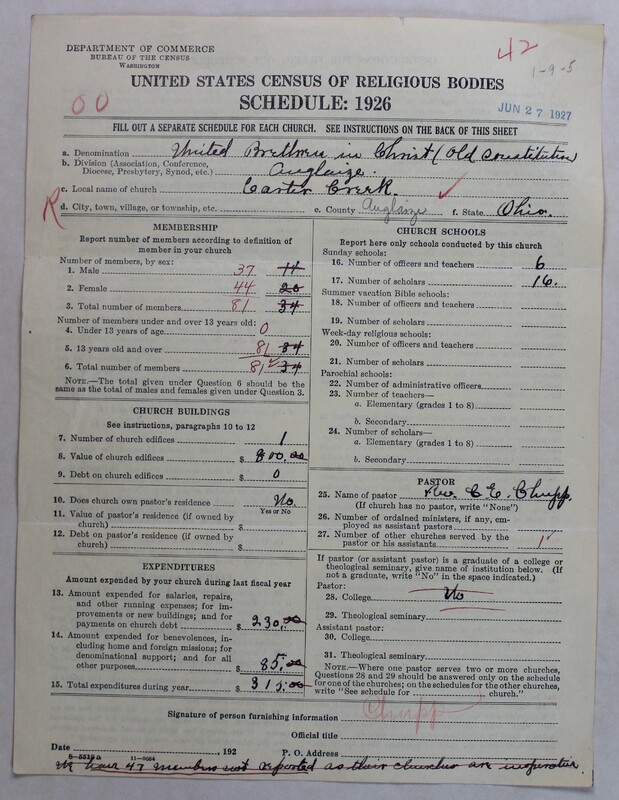 DEPARTMENT OF COMMERCE
BUREAU OF THE CENSUS
WASHINGTON
42
1-9-5
UNITED STATES CENSUS OF RELIGIOUS BODIES
SCHEDULE: 1926
00
JUN 27 1927
FILL OUT A SEPARATE SCHEDULE FOR EACH CHURCH. SEE INSTRUCTIONS ON THE BACK OF THIS SHEET
a. Denomination United Brethren in Christ (Old Constitution)
b. Division (Association, Conference, Diocese, Presbytery, Synod, etc.) Auglaize.
c. Local name of church Carter Creek. ✓
R
d. City, town, village, or township, etc. e. County Auglaize f. State Ohio.
MEMBERSHIP
Report number of members according to definition of member in your church
Number of members, by sex:
1. Male 37 14
2. Female 44 20
3. Total number of members 81 34
Number of members under and over 13 years old:
4. Under 13 years of age 0
5. 13 years old and over 81 34
6. Total number of members 81 ✓ 34
NOTE.—The total given under Question 6 should be the same as the total of males and females given under Question 3.
CHURCH BUILDINGS
See instructions, paragraphs 10 to 12
7. Number of church edifices 1
8. Value of church edifices $ 800.00
9. Debt on church edifices $ 0
10. Does church own pastor's residence No.
Yes or No
11. Value of pastor's residence (if owned by church) $
12. Debt on pastor's residence (if owned by church) $
EXPENDITURES
Amount expended by your church during last fiscal year
13. Amount expended for salaries, repairs, and other running expenses; for improvements or new buildings; and for payments on church debt $ 230.00
14. Amount expended for benevolences, including home and foreign missions; for denominational support; and for all other purposes $ 85.00
15. Total expenditures during year $ 315.00
CHURCH SCHOOLS
Report here only schools conducted by this church
Sunday schools:
16. Number of officers and teachers 6
17. Number of scholars 16.
Summer vacation Bible schools:
18. Number of officers and teachers
19. Number of scholars
Week-day religious schools:
20. Number of officers and teachers
21. Number of scholars
Parochial schools:
22. Number of administrative officers
23. Number of teachers—
a. Elementary (grades 1 to 8)
b. Secondary
24. Number of scholars—
a. Elementary (grades 1 to 8)
b. Secondary
PASTOR
25. Name of pastor Rev. C. E. Chupp.
(If church has no pastor, write "None")
26. Number of ordained ministers, if any, employed as assistant pastors
27. Number of other churches served by the pastor or his assistants 1
If pastor (or assistant pastor) is a graduate of a college or theological seminary, give name of institution below. (If not a graduate, write "No" in the space indicated.)
Pastor:
28. College No
29. Theological seminary
Assistant pastor:
30. College
31. Theological seminary
NOTE.—Where one pastor serves two or more churches, Questions 28 and 29 should be answered only on the schedule for one of the churches; on the schedules for the other churches, write "See schedule for church."
Chupp
Signature of person furnishing information
Official title
Date , 192 P. O. Address
8-5519a 11-9064
We have 47 members not reported as their churches are inoperative